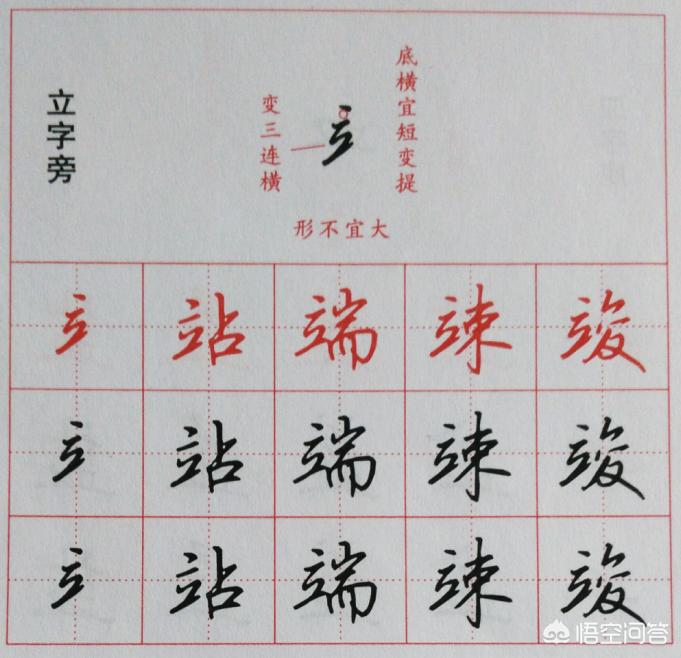 立字旁
变三连横
底横宜短变提
形不宜大
立 站 端 竦 竣
立 站 端 竦 竣
立 站 端 竦 竣
悟空问答